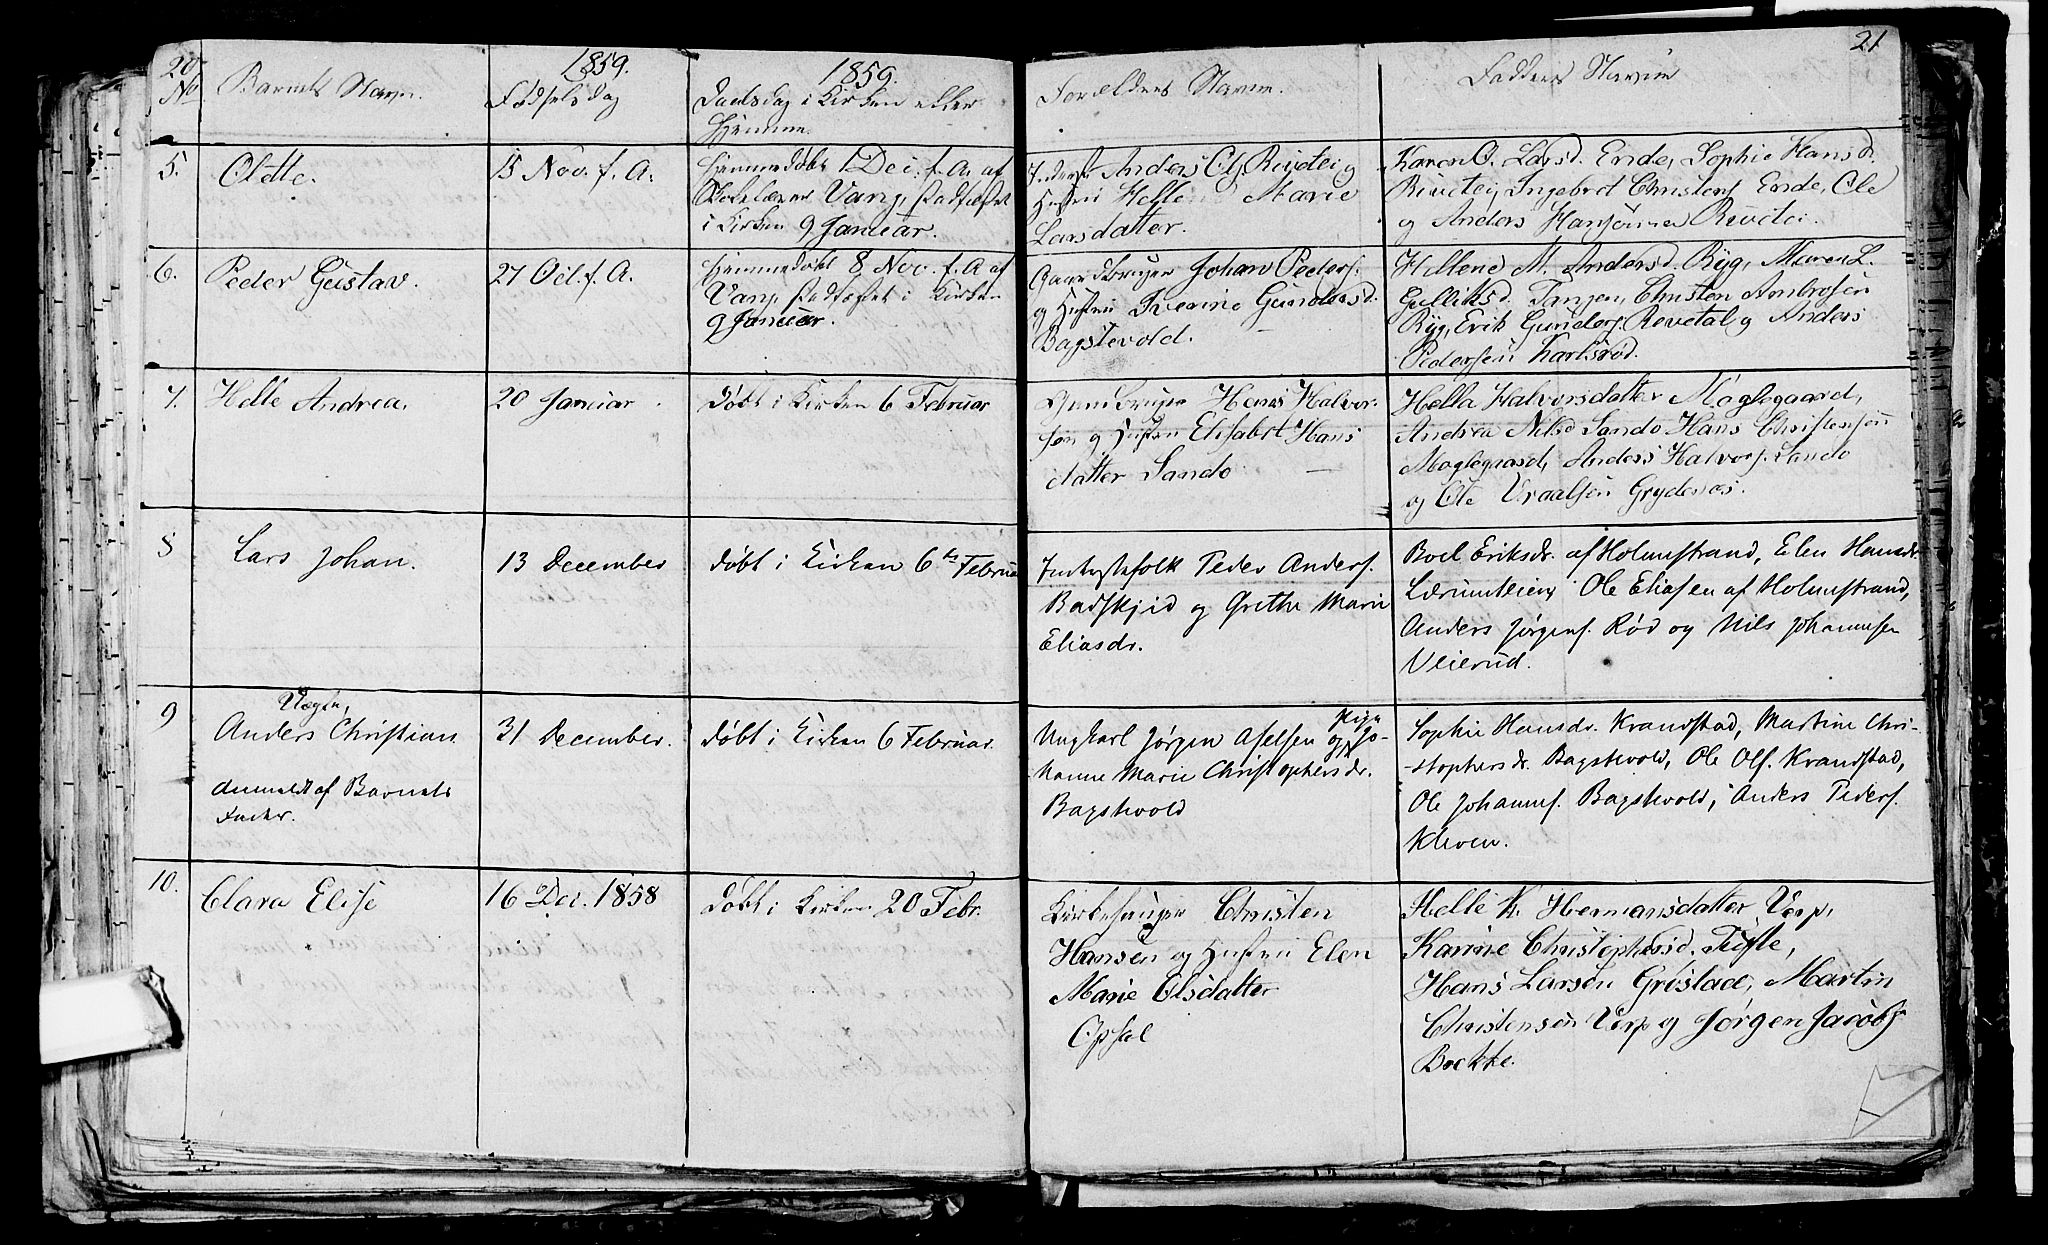 20
1859.
1859.
21
No
Barnets Navn.
Fødselsdag
Daabsdag i Kirken eller
Hjemme.
Forældres Navne.
Faddres Navne
5.
Olette.
15 Nov. f. A.
Hjemmedøbt 1 Dec. f. A. af
Skolelærer Vang, stadfæstet
i Kirken 9 Januar.
Inderst Anders Ols. Revetei og
Hustru Helline Marie
Larsdatter.
Karen O. Larsd. Ende, Sophie Hansd.
Revetei, Ingebret Christens. Ende, Ole
og Anders Hansønner Revetei.
6.
Peder Gustav.
27 Oct. f. A.
Hjemmedøbt 8 Nov. f. A. af
Vang, stadfæstet i Kirken
9 Januar.
Gaardbruger Johan Peders.
og Hustru Iverine Gundersd.
Bagstevold.
Hellene M. Andersd. Ryg, Maren L.
Gulliksd. Tangen, Christen Ambrosen
Ryg, Erik Gunders. Revetal og Anders
Pedersen Karlsrød.
7.
Helle Andrea.
20 Januar.
Døbt i Kirken 6 Februar
Gaardbruger Hans Halvor-
sen og Hustru Elisabet Hans
datter Sando.
Hella Halvorsdatter Møglegaard,
Andrea Nilsd Sando Hans Christensen
Moglegaard, Anders Halvors. Sando
og Ole Vraalsen Grydenæs.
8
Lars Johan.
13 December
døbt i Kirken 6te Februar
Inderstefolk Peder Anders.
Badskjid og Grethe Marie
Eliasdr.
Boel Eriksdr. af Holmestrand, Elen Hansdr.
Lærumteien Ole Eliasen af Holmestrand,
Anders Jørgens. Rød og Nils Johannesen
Veierud.
9
Uægte,
Anders Christian
Anmeldt af Barnets
Fader.
31 December.
døbt i Kirken 6 Februar.
Ungkarl Jørgen Axelsen og Pige Jo-
hanne Marie Christophersdr.
Bagstevold
Sophie Hansdr. Krandstad, Martine Chri-
stophersdr. Bagstevold, Ole Ols. Krandstad,
Ole Johannes. Bagstevold, Anders Peders.
Kleven.
10.
Clara Elise
16 Dec. 1858
Døbt i Kirken 20 Febr.
Kirkesanger Christen
Hansen og Hustru Elen
Marie Olsdatter
Opsal
Helle K. Hermansdatter Verp,
Karine Christophersd. Tufte,
Hans Larsen Grøstad, Martin
Christensen Verp og Jørgen Jacobs.
Brekke.